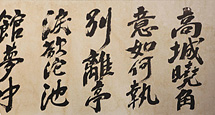 高城曉角
意如何執
別離亭
淚欲沱池
館夢中